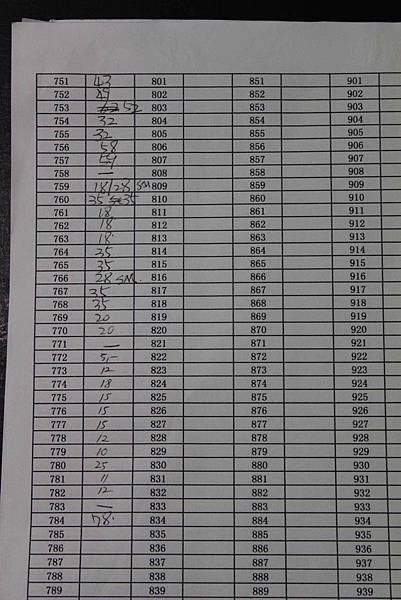 751 43 801 851 901
752 49 802 852 902
753 52 803 853 903
754 32 804 854 904
755 32 805 855 905
756 58 806 856 906
757 59 807 857 907
758 — 808 858 908
759 18/28 SM 809 859 909
760 35 35 810 860 910
761 18 811 861 911
762 18 812 862 912
763 18 813 863 913
764 25 814 864 914
765 35 815 865 915
766 28 SM 816 866 916
767 35 817 867 917
768 35 818 868 918
769 20 819 869 919
770 20 820 870 920
771 — 821 871 921
772 5,- 822 872 922
773 12 823 873 923
774 18 824 874 924
775 15 825 875 925
776 15 826 876 926
777 15 827 877 927
778 12 828 878 928
779 10 829 879 929
780 25 830 880 930
781 11 831 881 931
782 12 832 882 932
783 — 833 883 933
784 78 834 884 934
785 835 885 935
786 836 886 936
787 837 887 937
788 838 888 938
789 839 889 939